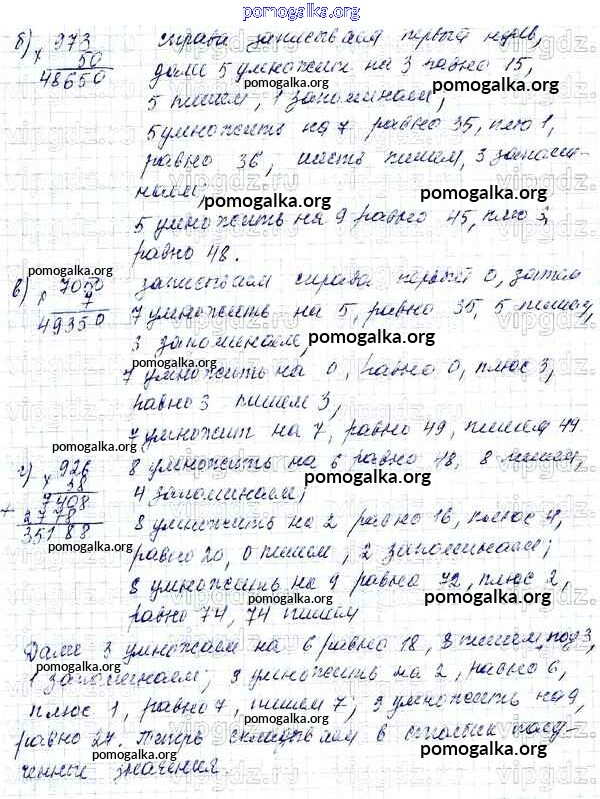 pomogalka.org
б) 973 справа записываем первый нуль,
х 50 далее 5 умножить на 3 равно 15,
48650 5 пишем, 1 запоминаем,
pomogalka.org
5 умножить на 7 равно 35, плю 1,
равно 36, шесть пишем, 3 запоми-
наем;
pomogalka.org
5 умножить на 9 равно 45, плю 3,
равно 48.
pomogalka.org
pomogalka.org
в) 7050 записываем справа первый 0, затем
х 7 7 умножить на 5, равно 35, 5 пишем,
49350 3 запоминаем,
pomogalka.org
pomogalka.org
7 умножить на 0, равно 0, плюс 3,
равно 3 пишем 3,
pomogalka.org
7 умножит на 7, равно 49, пишем 49
pomogalka.org
г) 926 8 умножить на 6 равно 18, 8 пишем,
х 38 4 запоминаем;
pomogalka.org
+ 7408 8 умножить на 2 равно 16, плюс 4,
2778 равно 20, 0 пишем, 2 запоминаем;
35188
pomogalka.org
pomogalka.org
8 умножить на 9 равно 72, плюс 2,
pomogalka.org
равно 74, 74 пишем
pomogalka.org
Далее 3 умножаем на 6 равно 18, 8 пишем под 3,
pomogalka.org
1 запоминаем; 3 умножить на 2, равно 6,
pomogalka.org
плюс 1, равно 7, пишем 7; 3 умножить на 9,
равно 27. Теперь складываем в столбик полу-
pomogalka.org
ченные значения
pomogalka.org